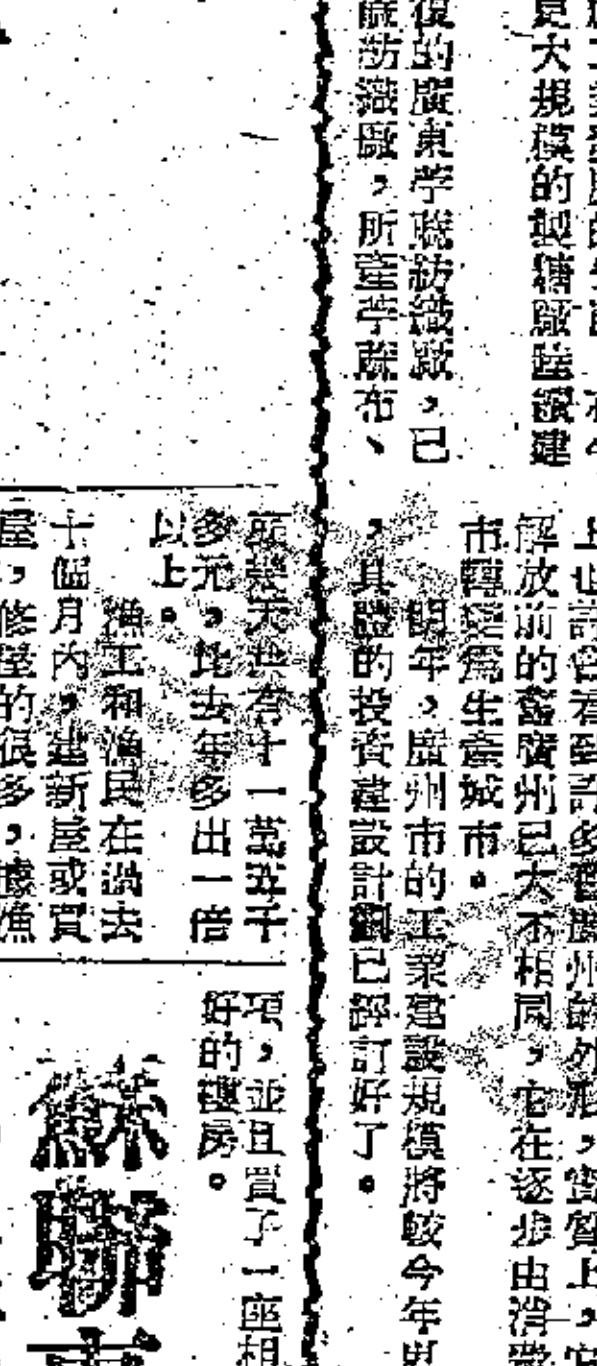 是大規模的製糖廠陸續建
復的廣東苧蔴紡織廠，已
蔴紡織廠，所產苧蔴布、
解放前的舊廣州已大不相同，它在逐步由消
市轉變爲生產城市。
明年，廣州市的工業建設規模將較今年更
，具體的投資建設計劃已經訂好了。
天也有十一萬五千
多元，比去年多出一倍
以上。
漁工和漁民在過去
十個月內，建新屋或買
屋，修屋的很多，據漁
項，並且買了一座相
好的樓房。
蘇聯